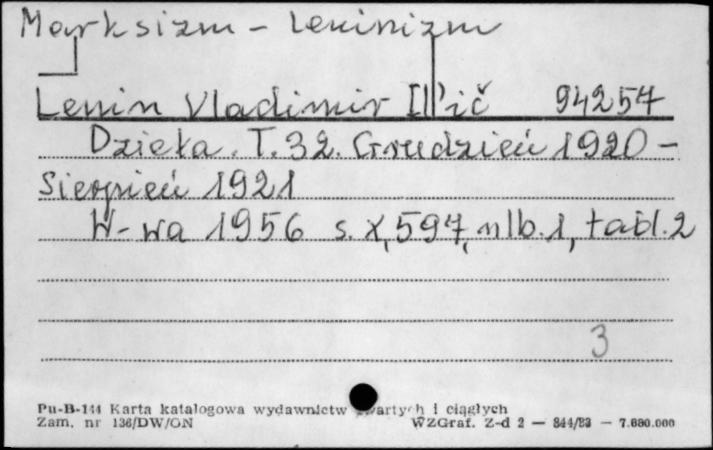 Marksizm - Leninizm
Lenin Vladimir Il'ič 94257
Dzieła. T.32. Grudzień 1920 -
Sierpień 1921
W-wa 1956 s. X, 597, nlb. 1, tabl. 2
3
Pu-B-144 Karta katalogowa wydawnictw zwartych i ciągłych
Zam. nr 136/DW/ON WZGraf. Z-d 2 — 844/83 — 7.680.000